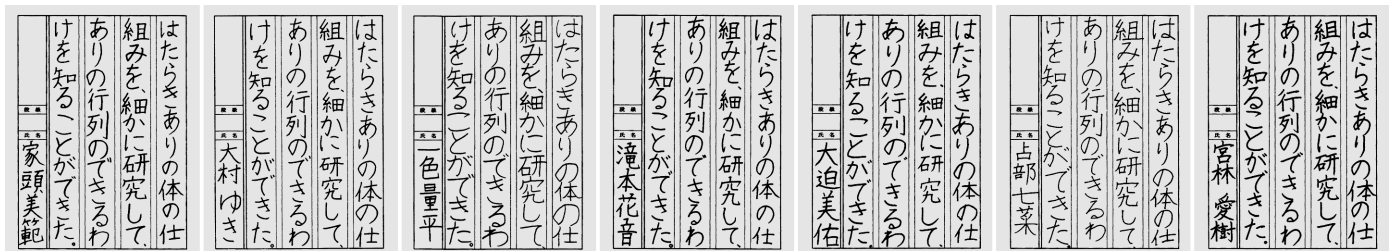 はたらきありの体の仕
組みを、細かに研究して、
ありの行列のできるわ
けを知ることができた。
段級
氏名
家頭美範
はたらきありの体の仕
組みを、細かに研究して、
ありの行列のできるわ
けを知ることができた。
段級
氏名
大村ゆき
はたらきありの体の仕
組みを、細かに研究して、
ありの行列のできるわ
けを知ることができた。
段級
氏名
一色量平
はたらきありの体の仕
組みを、細かに研究して、
ありの行列のできるわ
けを知ることができた。
段級
氏名
滝本花音
はたらきありの体の仕
組みを、細かに研究して、
ありの行列のできるわ
けを知ることができた。
段級
氏名
大迫美佑
はたらきありの体の仕
組みを、細かに研究して、
ありの行列のできるわ
けを知ることができた。
段級
氏名
占部七菜
はたらきありの体の仕
組みを、細かに研究して、
ありの行列のできるわ
けを知ることができた。
段級
氏名
宮林愛樹